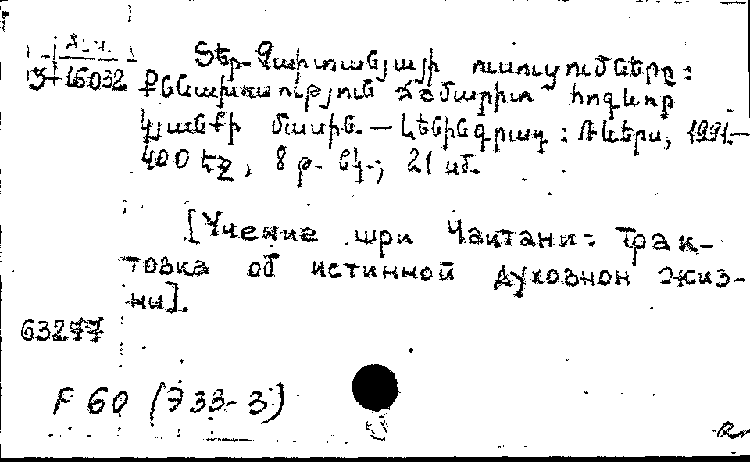 Տեր Չաիտանյայի ուսուցումները:
Յ-16032 Քննախոսություն ճշմարիտ հոգևոր
կյանքի մասին. — Լենինգրադ: Ռևերս, 1991—
400 էջ, 8 թ. նկ.; 21 սմ.
[Учение шри Чаитани: Трак-
товка об истинной духовнои жиз-
ни].
63277
F 60 (Э33-3)